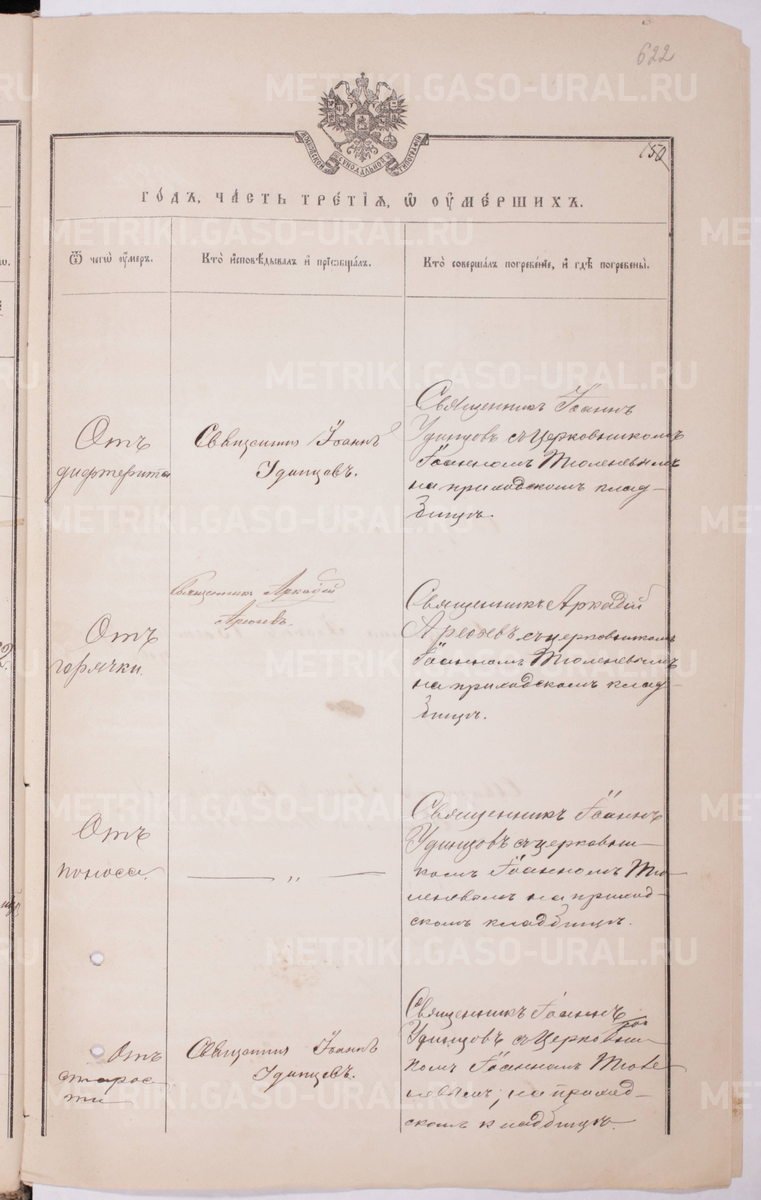 622
150
METRIKI.GASO-URAL.RU
МОСКОВСКОЙ СѴНОДАЛЬНОЙ ТИПОГРАФІИ
ГО́ДЪ, ЧА́СТЬ ТРЕ́ТІѦ, Ѿ ОУ҆МЕ́РШИХЪ.
Ѿ чегѡ̀ оу҆́меръ.
Кто̀ и҆сповѣ́дывалъ и҆ прїѡбща́лъ.
Кто̀ соверша́лъ погребе́нїе, и҆ гдѣ̀ погребены̀.
Отъ
дифтерита
Священник Іоаннъ
Удинцовъ.
Священникъ Іоаннъ
Удинцовъ съ церковникомъ
Іоанномъ Тюленевымъ
на приходскомъ клад-
бищѣ.
Отъ
горячки.
Священник Аркадій
Арефьевъ.
Священникъ Аркадій
Арефьевъ съ церковникомъ
Іоанномъ Тюленевымъ
на приходскомъ клад-
бищѣ.
Отъ
поноса.
— „ —
Священникъ Іоаннъ
Удинцовъ съ церковни-
комъ Іоанномъ Тю-
леневымъ на приход-
скомъ кладбищѣ.
Отъ
старос-
ти
Священник Іоаннъ
Удинцовъ.
Священникъ Іоаннъ
Удинцовъ съ церковни-
комъ Іоанномъ Тюле-
невымъ, на приход-
скомъ кладбищѣ.